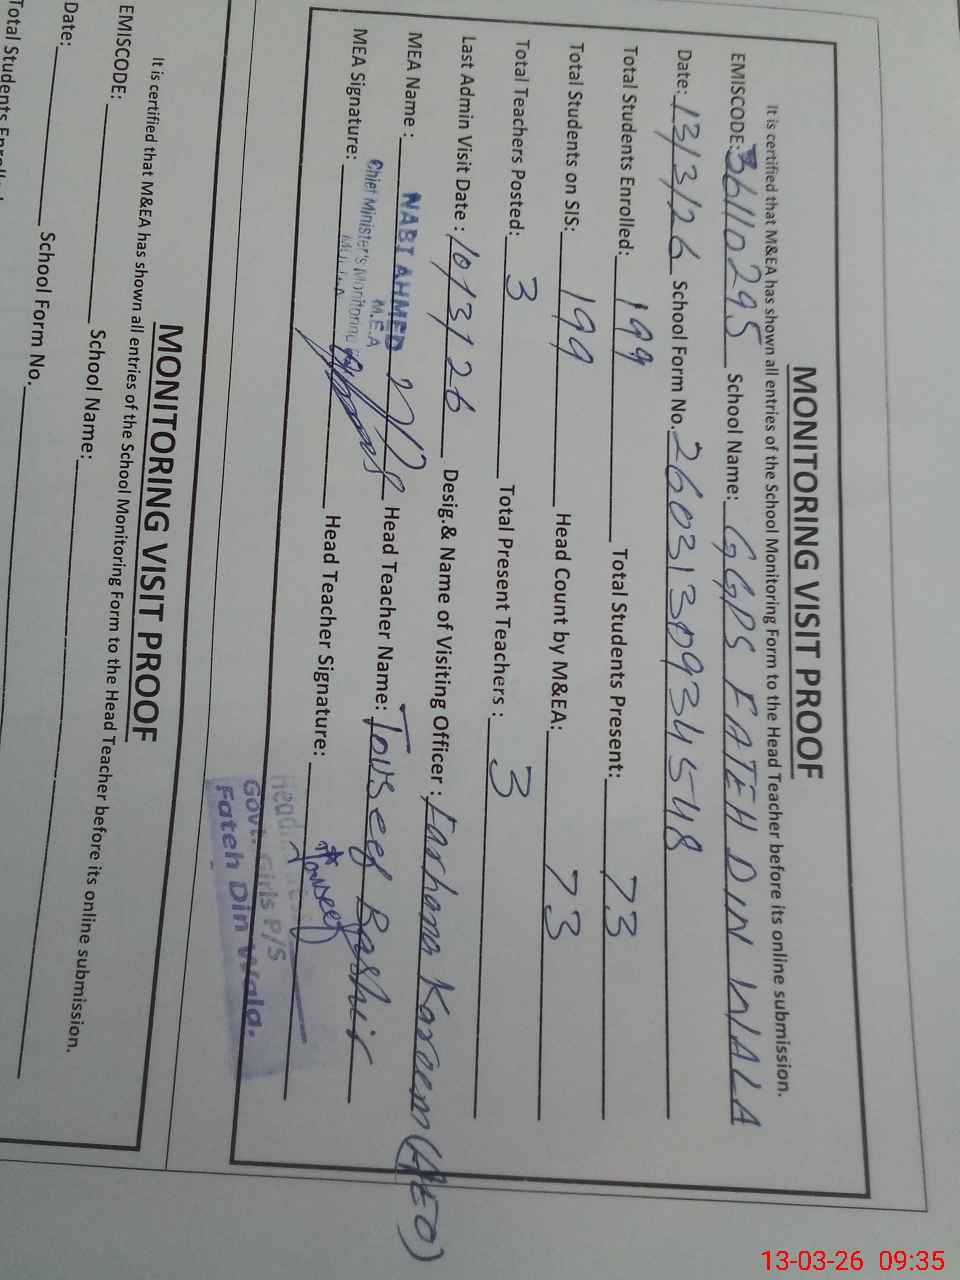 MONITORING VISIT PROOF
It is certified that M&EA has shown all entries of the School Monitoring Form to the Head Teacher before its online submission.
EMISCODE: 36110295 School Name: GGPS FATEH DIN WALA
Date: 13/3/26 School Form No. 2603130934548
Total Students Enrolled: 199 Total Students Present: 73
Total Students on SIS: 199 Head Count by M&EA: 73
Total Teachers Posted: 3 Total Present Teachers : 3
Last Admin Visit Date : 10/3/26 Desig.& Name of Visiting Officer : Farhana Karaem (AEO)
MEA Name : NABI AHMED Head Teacher Name: Touseef Bashir
M.E.A
Chief Minister's Monitoring
MEA Signature: Head Teacher Signature: Touseef
Govt. Girls P/S
Fateh Din Wala.
MONITORING VISIT PROOF
It is certified that M&EA has shown all entries of the School Monitoring Form to the Head Teacher before its online submission.
EMISCODE: School Name:
Date: School Form No.
Total Students
13-03-26 09:35